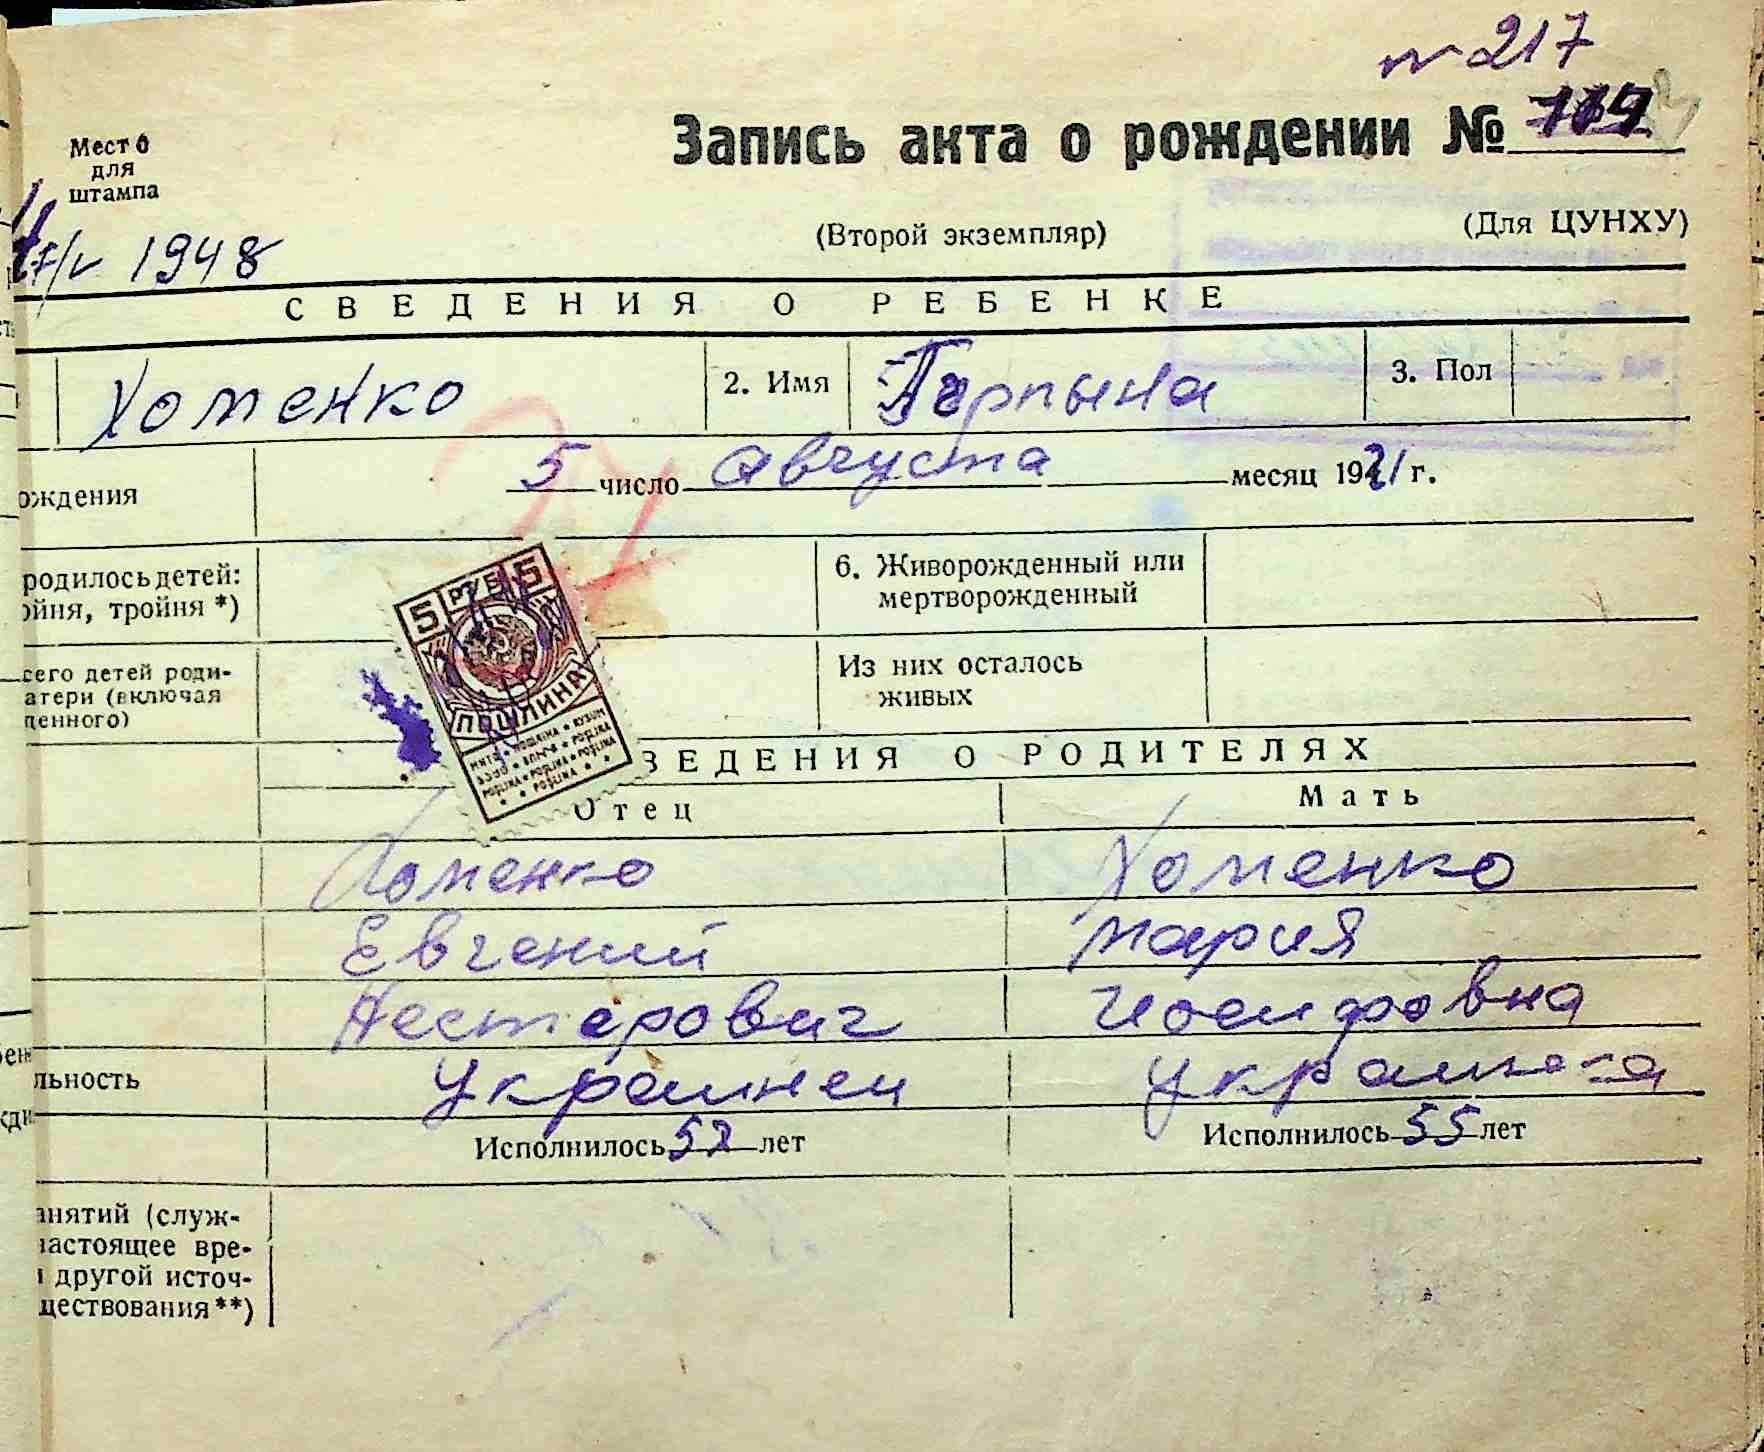 № 217
Запись акта о рождении №
Место
для
штампа
(Второй экземпляр)
(Для ЦУНХУ)
1948
СВЕДЕНИЯ О РЕБЕНКЕ
Хоменко 2. Имя Гарпына 3. Пол
ождения 5 число августа месяц 1921 г.
родилось детей:
ойня, тройня *)
6. Живорожденный или
мертворожденный
сего детей роди-
атери (включая
денного)
Из них осталось
живых
5 РУБ 5
ПОШЛИНА
ВЕДЕНИЯ О РОДИТЕЛЯХ
Отец Мать
Хоменко Хоменко
Евгений Мария
Нестерович Иосифовна
льность украинец украинка
Исполнилось 52 лет Исполнилось 55 лет
анятий (служ-
настоящее вре-
и другой источ-
ществования **)